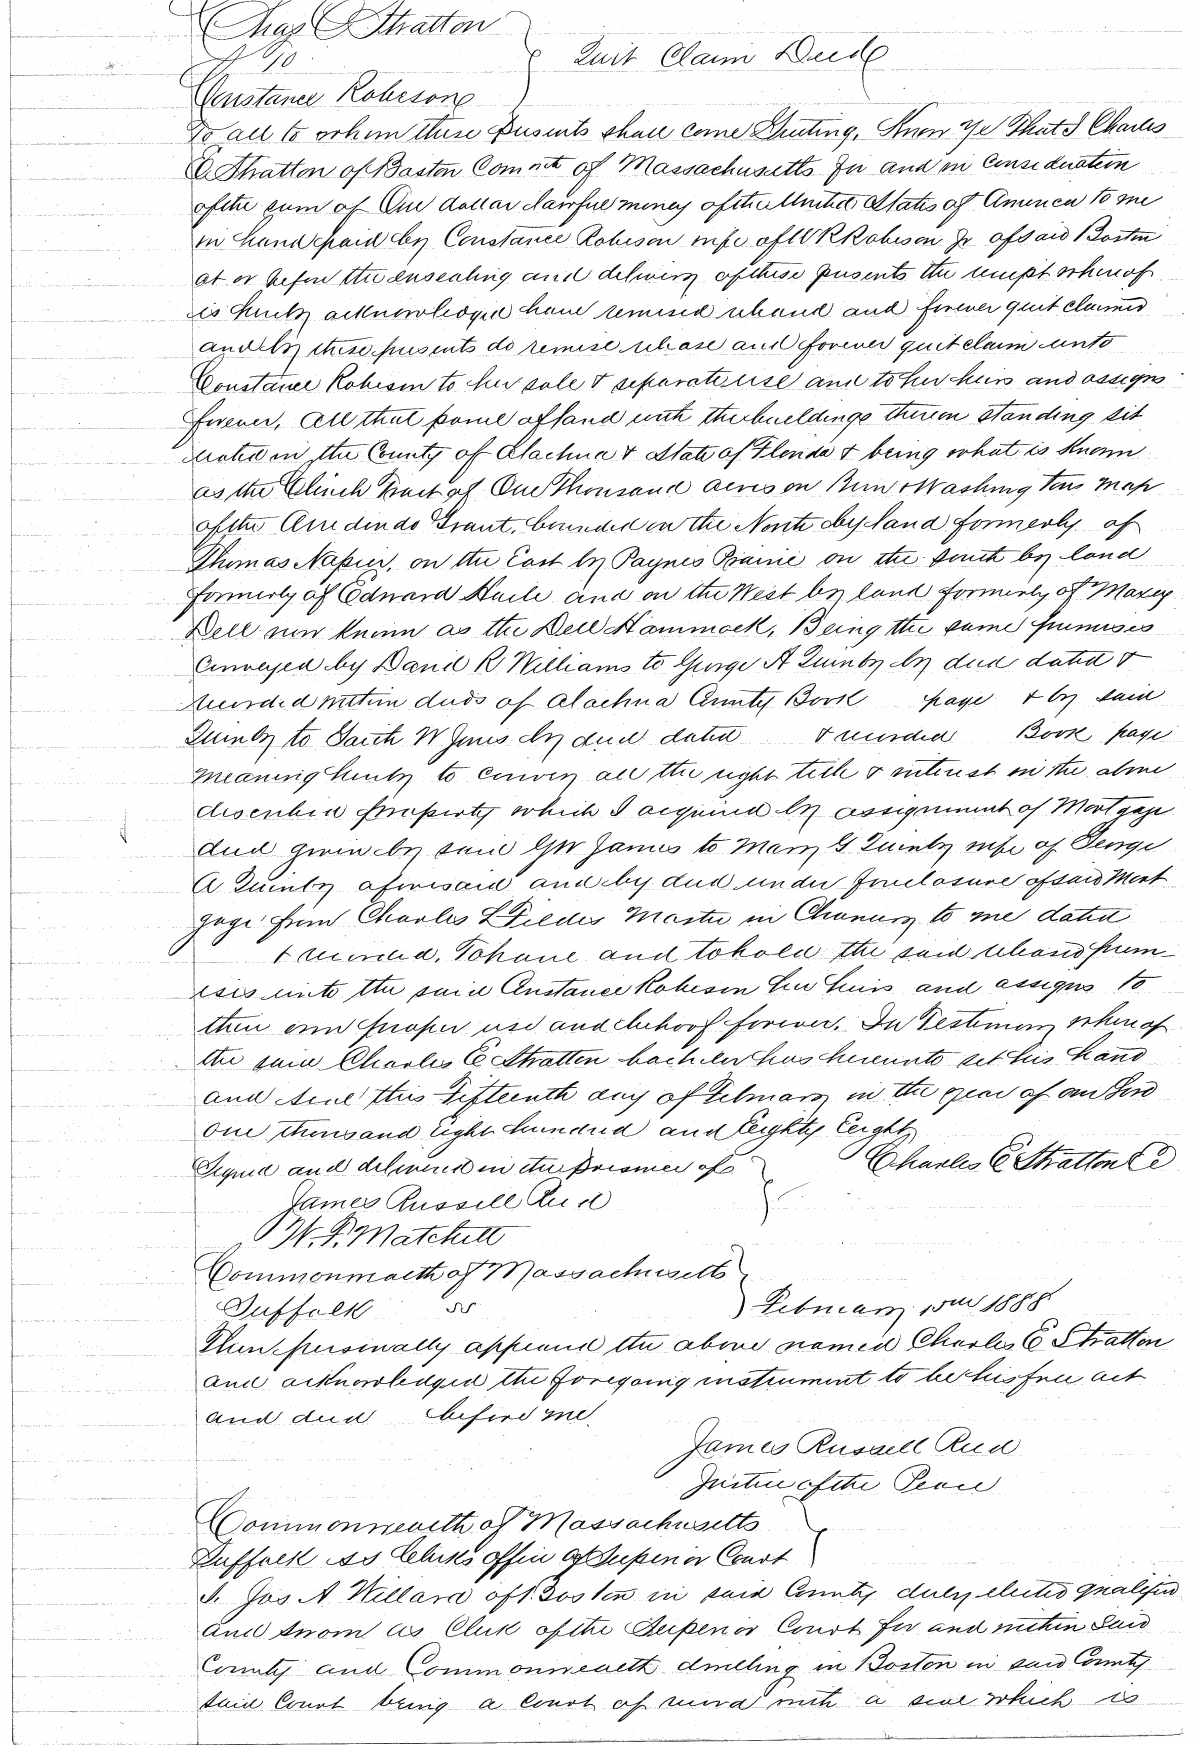 Chas E Stratton
To
Quit Claim Deed
Constance Robeson
To all to whom these presents shall come Greeting, Know Ye That I Charles
E Stratton of Boston Comwlt of Massachusetts for and in consideration
of the sum of One dollar lawful money of the United States of America to me
in hand paid by Constance Robeson wife of W R Robeson Jr of said Boston
at or before the ensealing and delivery of these presents the receipt whereof
is hereby acknowledged have remised released and forever quit claimed
and by these presents do remise release and forever quit claim unto
Constance Robeson to her sole & separate use and to her heirs and assigns
forever, All that parcel of land with the buildings thereon standing sit
uated in the County of Alachua & State of Florida & being what is known
as the Clinch Tract of One Thousand acres on Burr & Washingtons map
of the Arredondo Grant, bounded on the North by land formerly of
Thomas Napier, on the East by Paynes Prairie on the South by land
formerly of Edward Haile and on the West by land formerly of Maxey
Dell now known as the Dell Hammock, Being the same premises
conveyed by David R Williams to George A Quinby by deed dated &
recorded within deeds of Alachua County Book page & by said
Quinby to Garth W James by deed dated & recorded Book page
meaning hereby to convey all the right title & interest in the above
described property which I acquired by assignment of Mortgage
deed given by said GW James to Mary G Quinby wife of George
A Quinby aforesaid and by deed under foreclosure of said Mort
gage from Charles L Fildes Master in Chancery to me dated
& recorded. To have and to hold the said released prem
ises unto the said Constance Robeson her heirs and assigns to
their own proper use and behoof forever. In Testimony whereof
the said Charles E Stratton bachelor has hereunto set his hand
and seal this Fifteenth day of February in the year of our Lord
one thousand Eight hundred and Eighty Eight
Signed and delivered in the presence of
Charles E Stratton
James Russell Reed
W. P. Matchett
Commonwealth of Massachusetts
Suffolk ss
February 15th 1888
Then personally appeared the above named Charles E Stratton
and acknowledged the foregoing instrument to be his free act
and deed before me.
James Russell Reed
Justice of the Peace
Commonwealth of Massachusetts
Suffolk ss Clerks office of Superior Court
I. Jos A Willard of Boston in said County duly elected qualified
and sworn as Clerk of the Superior Court for and within Said
County and Commonwealth dwelling in Boston in said County
said Court being a Court of record with a seal which is